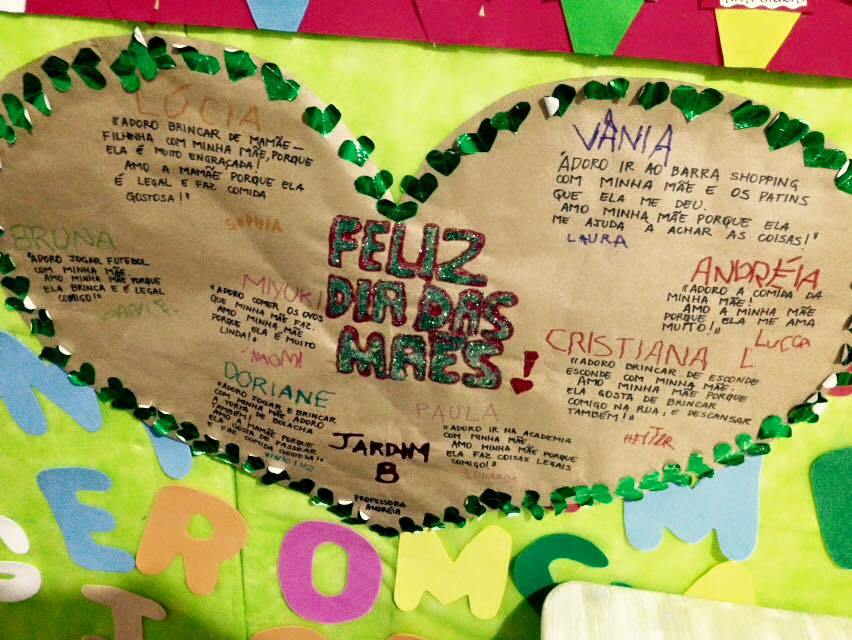 LÚCIA
"ADORO BRINCAR DE MAMÃE-
FILHINHA COM MINHA MÃE, PORQUE
ELA É MUITO ENGRAÇADA!
AMO A MAMÃE PORQUE ELA
É LEGAL E FAZ COMIDA
GOSTOSA!"
SOPHIA
BRUNA
"ADORO JOGAR FUTEBOL
COM MINHA MÃE.
AMO MINHA MÃE PORQUE
ELA BRINCA E É LEGAL
COMIGO!"
MIYUKI
"ADORO COMER OS OVOS
QUE MINHA MÃE FAZ.
AMO MINHA MÃE
PORQUE ELA É MUITO
LINDA!"
NAOMI
DORIANE
"ADORO JOGAR E BRINCAR
COM MINHA MÃE. ADORO
A TORTA DE BOLACHA
TAMBÉM!
AMO A MAMÃE PORQUE
ELA GOSTA DE PASSEAR
E FAZ COMIDA GOSTOSA!"
FELIZ
DIA DAS
MÃES!
JARDIM
B
PROFESSORA
ANDRÉIA
PAULA
"ADORO IR NA ACADEMIA
COM MINHA MÃE.
AMO MINHA MÃE PORQUE
ELA FAZ COISAS LEGAIS
COMIGO!"
VÂNIA
ADORO IR AO BARRA SHOPPING
COM MINHA MÃE E OS PATINS
QUE ELA ME DEU.
AMO MINHA MÃE PORQUE ELA
ME AJUDA A ACHAR AS COISAS!"
LAURA
ANDRÉIA
"ADORO A COMIDA DA
MINHA MÃE!
AMO A MINHA MÃE
PORQUE ELA ME AMA
MUITO!"
LUCCA
L
CRISTIANA
"ADORO BRINCAR DE ESCONDE
ESCONDE COM MINHA MÃE.
AMO MINHA MÃE PORQUE
ELA GOSTA DE BRINCAR
COMIGO NA RUA, E DESCANSAR
TAMBÉM!"
HEITOR